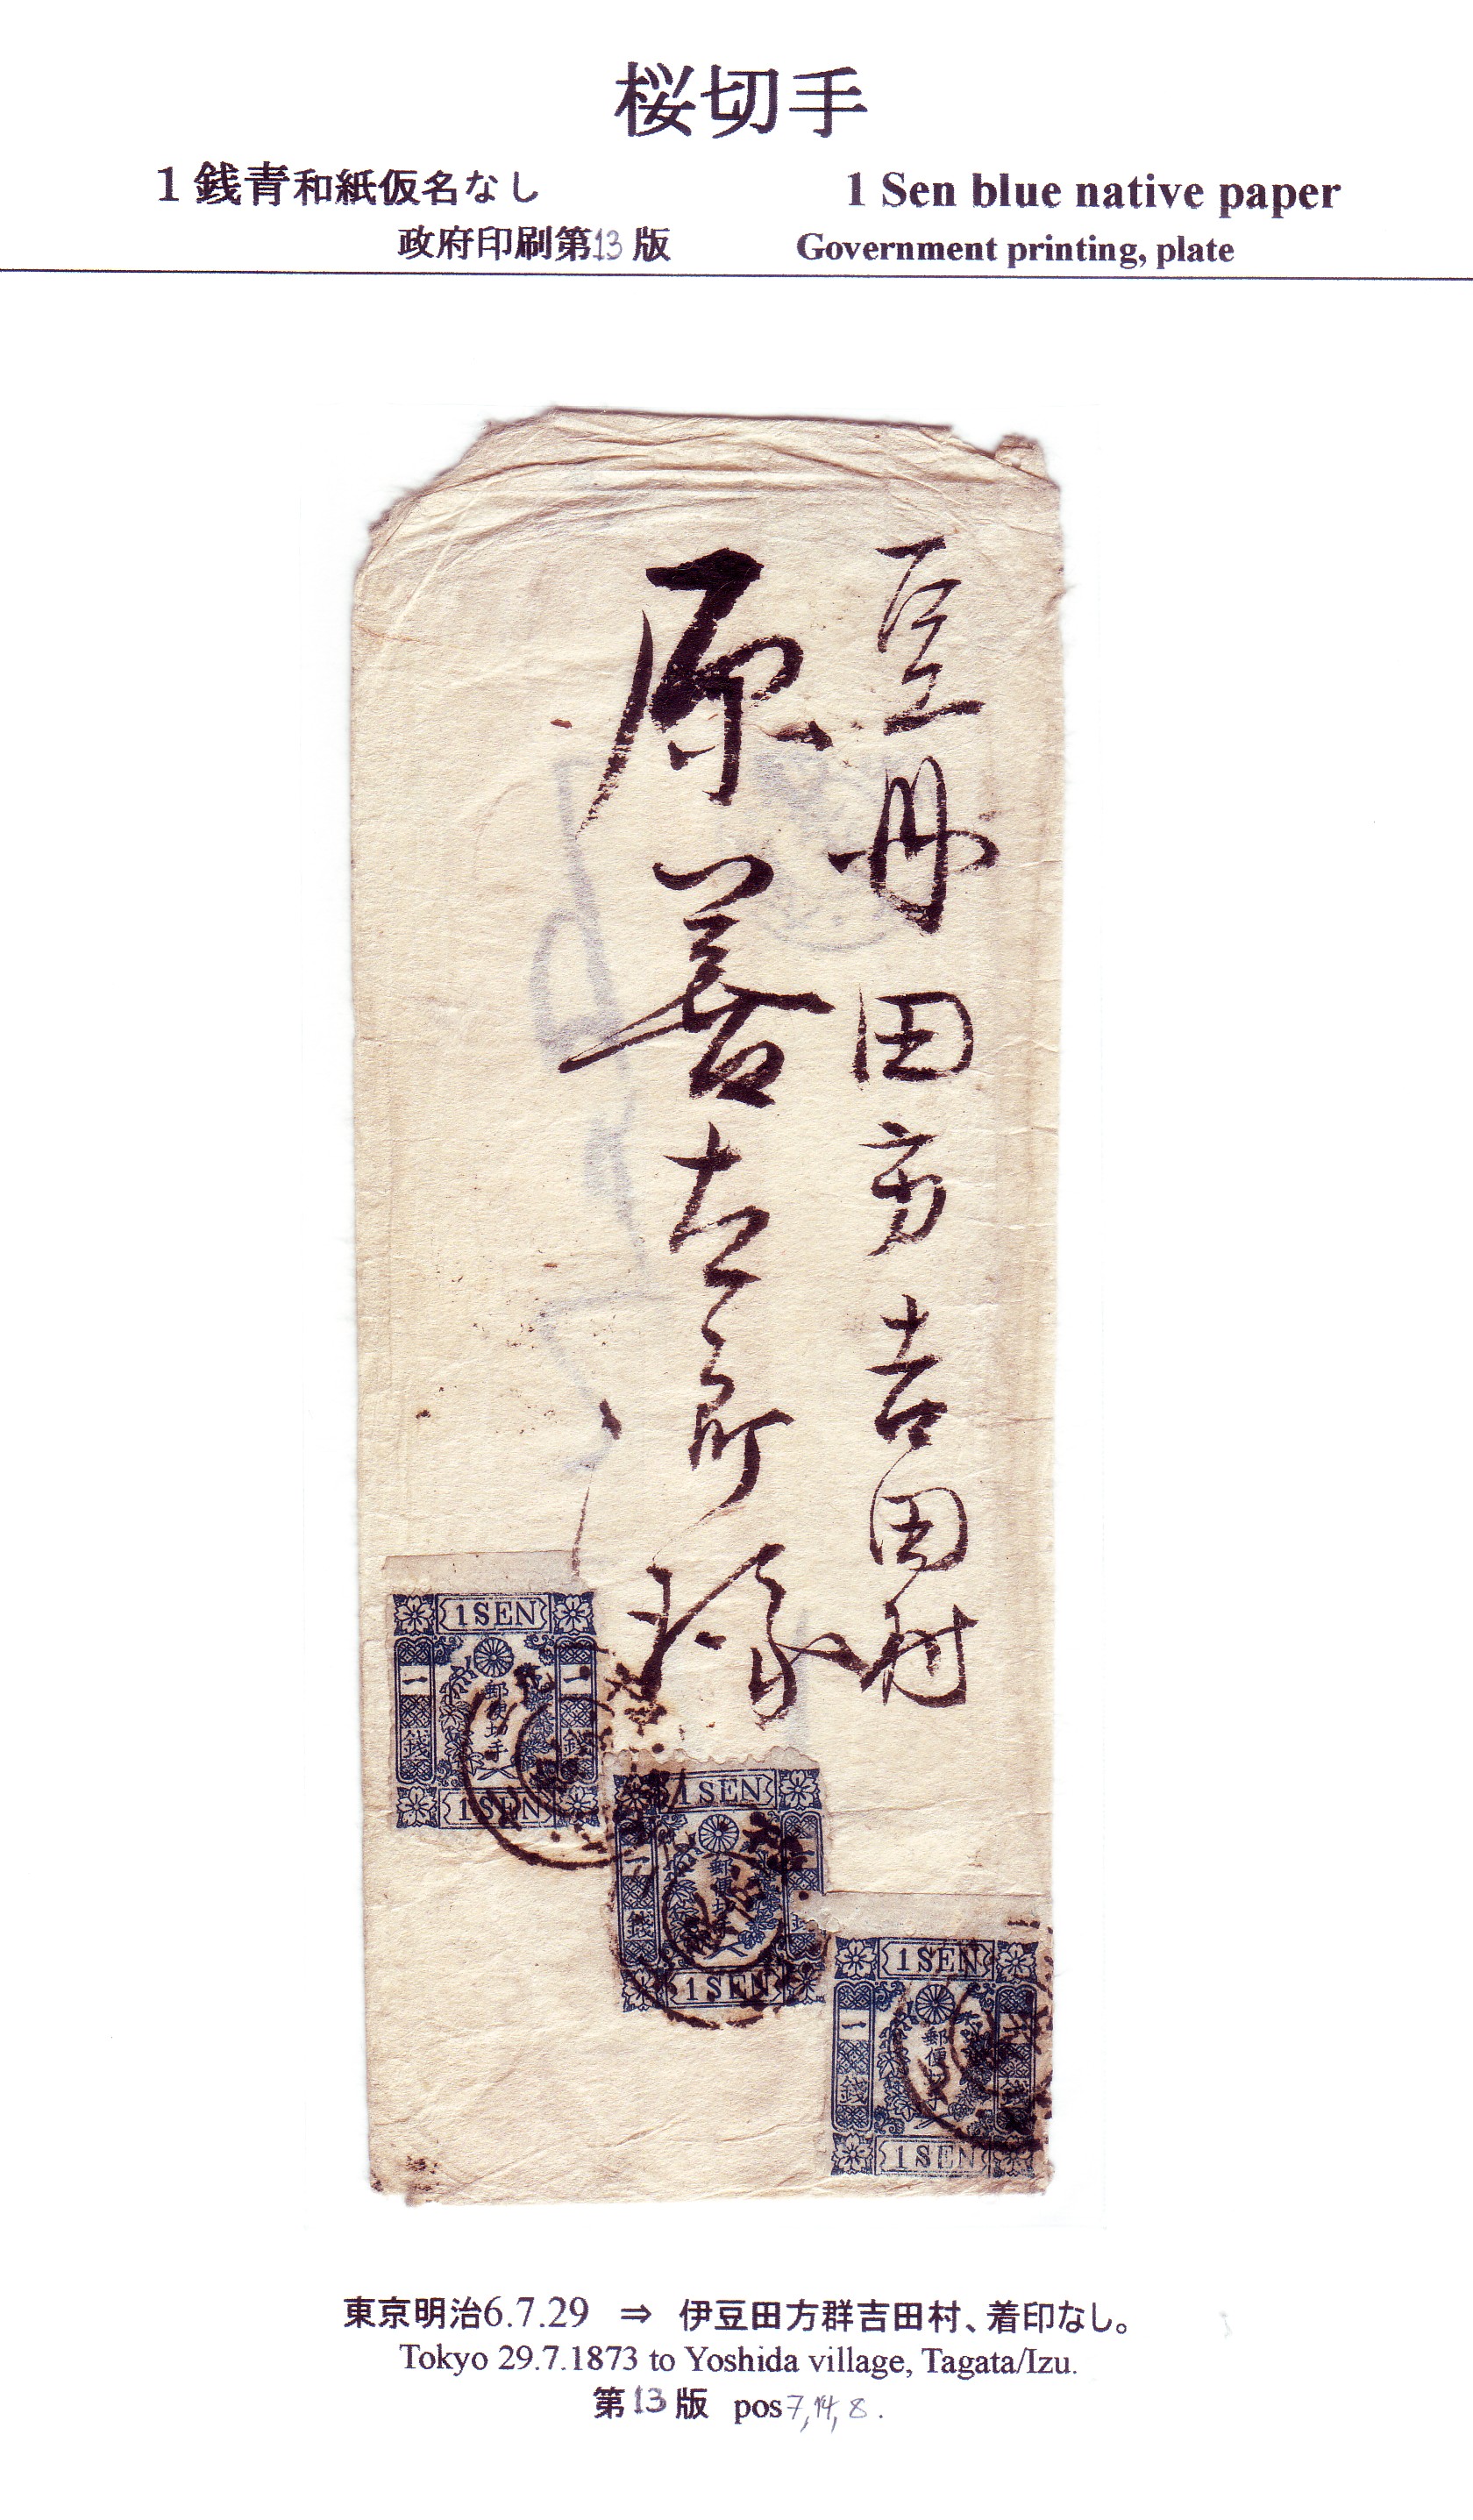 桜切手
1銭青和紙仮名なし
1 Sen blue native paper
政府印刷第13版
Government printing, plate
豆州田方吉田村
原善左郎様
1 SEN
一
一
郵便切手
銭
銭
1 SEN
1 SEN
一
郵便切手
銭
銭
1 SEN
1 SEN
一
一
郵便切手
銭
銭
1 SEN
東京明治6.7.29 ⇒ 伊豆田方群吉田村、着印なし。
Tokyo 29.7.1873 to Yoshida village, Tagata/Izu.
第13版 pos 7, 14, 8.